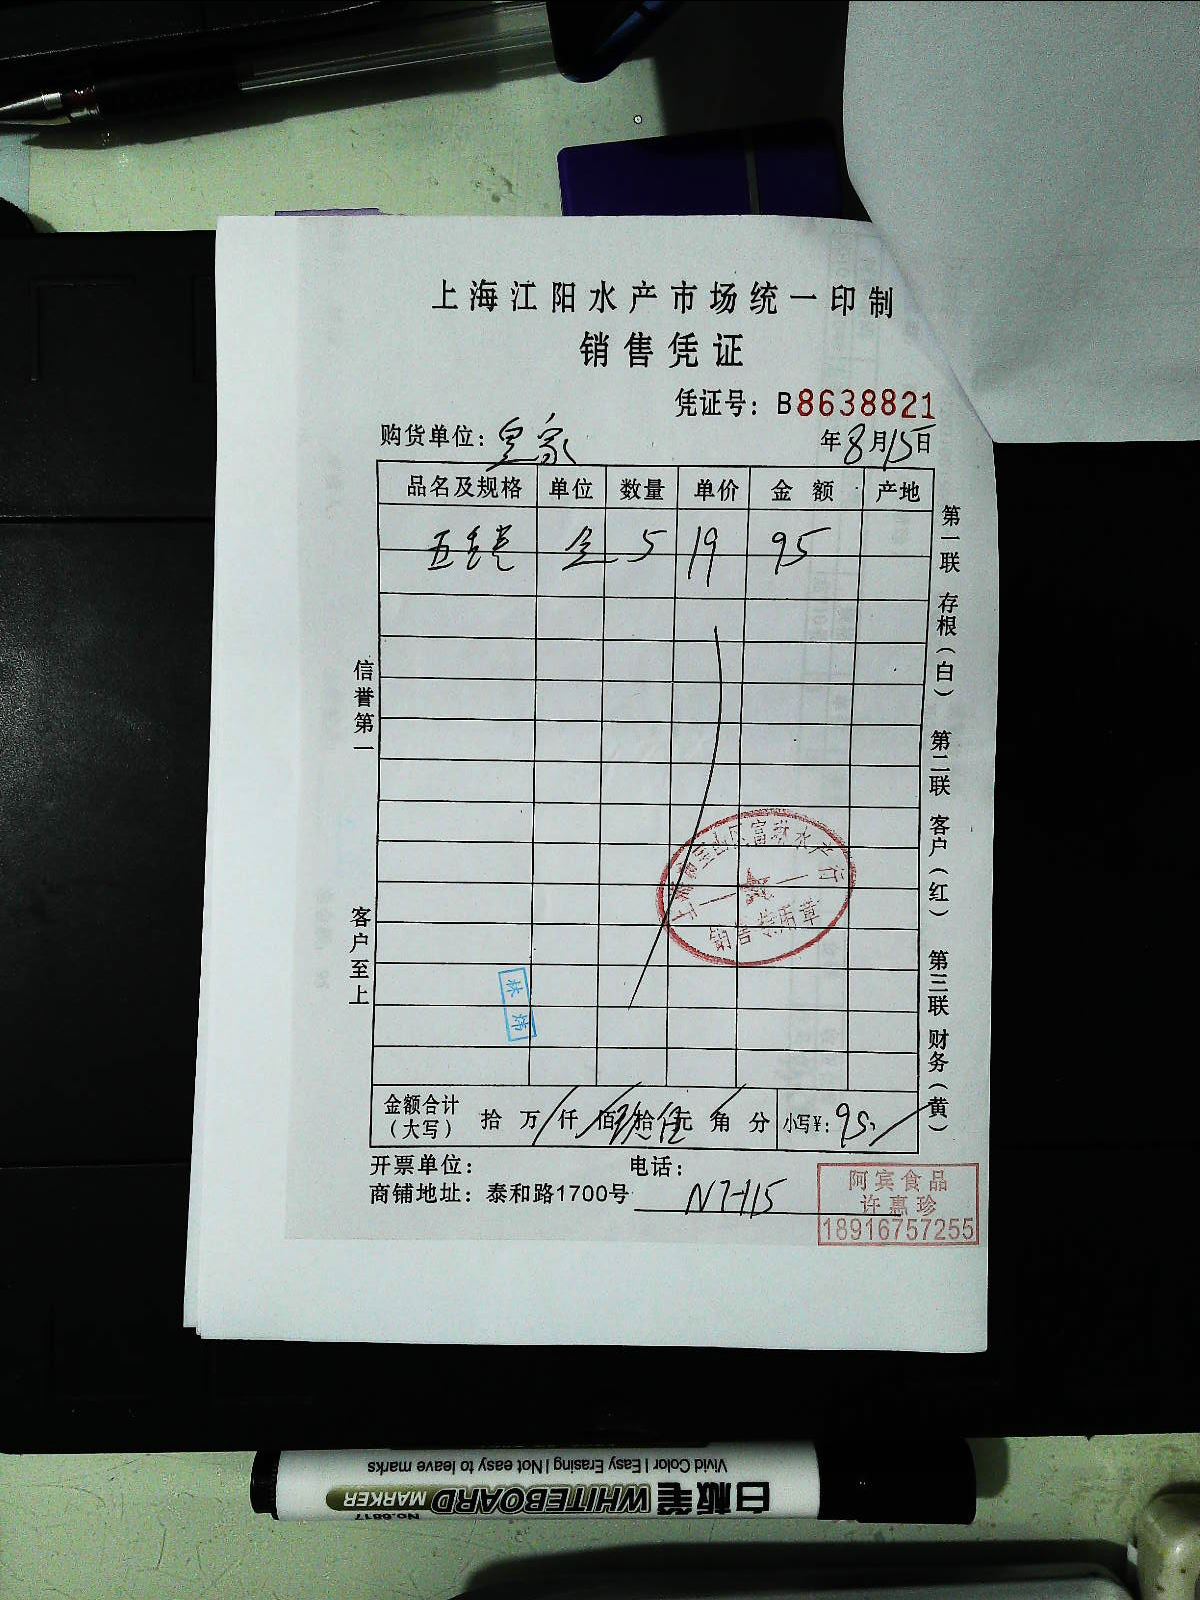 上海江阳水产市场统一印制
销售凭证
凭证号：B8638821
购货单位：皇家 年8月15日
品名及规格 单位 数量 单价 金额 产地
5 19 95
信誉第一
客户至上
第一联 存根（白） 第二联 客户（红） 第三联 财务（黄）
富 水产行
销售专用章
林炜
金额合计（大写） 拾 万 仟 佰 玖拾伍元 角 分 小写¥：95.
开票单位： 电话：
商铺地址：泰和路1700号 N7-115
阿宾食品
许惠珍
18916757255
Vivid Color | Easy Erasing | Not easy to leave marks
白板笔 WHITEBOARD MARKER
No.6817